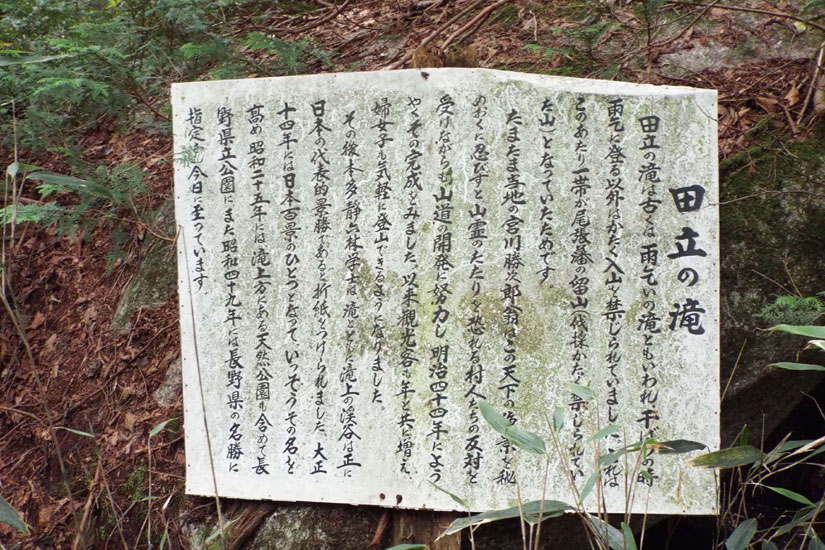 田立の滝
田立の滝は古くは雨乞いの滝ともいわれ、干ばつの時
雨乞に登る以外はかたく入山を禁じられていました。これは
このあたり一帯が尾張藩の留山(伐採かたく禁じられてい
た山)となっていたためです。
たまたま当地の宮川勝次郎翁はこの天下の 景を秘
めおくに忍びずと山霊のたたりを恐れる村人たちの反対を
受けながらも山道の開発に努力し、明治四十四年によう
やくその完成をみました。以来観光客は年と共に増え、
婦女子も気軽に登山できるようになりました。
その後本多静六林学士は滝とともに滝上の渓谷は正に
日本の代表的景勝であると折紙をつけられました。大正
十四年には日本百景のひとつとなって、いっそうその名を
高め 昭和二十五年には滝上方にある天然公園も含めて長
野県立公園にまた昭和四十九年には長野県の名勝に
指定 今日に至っています。